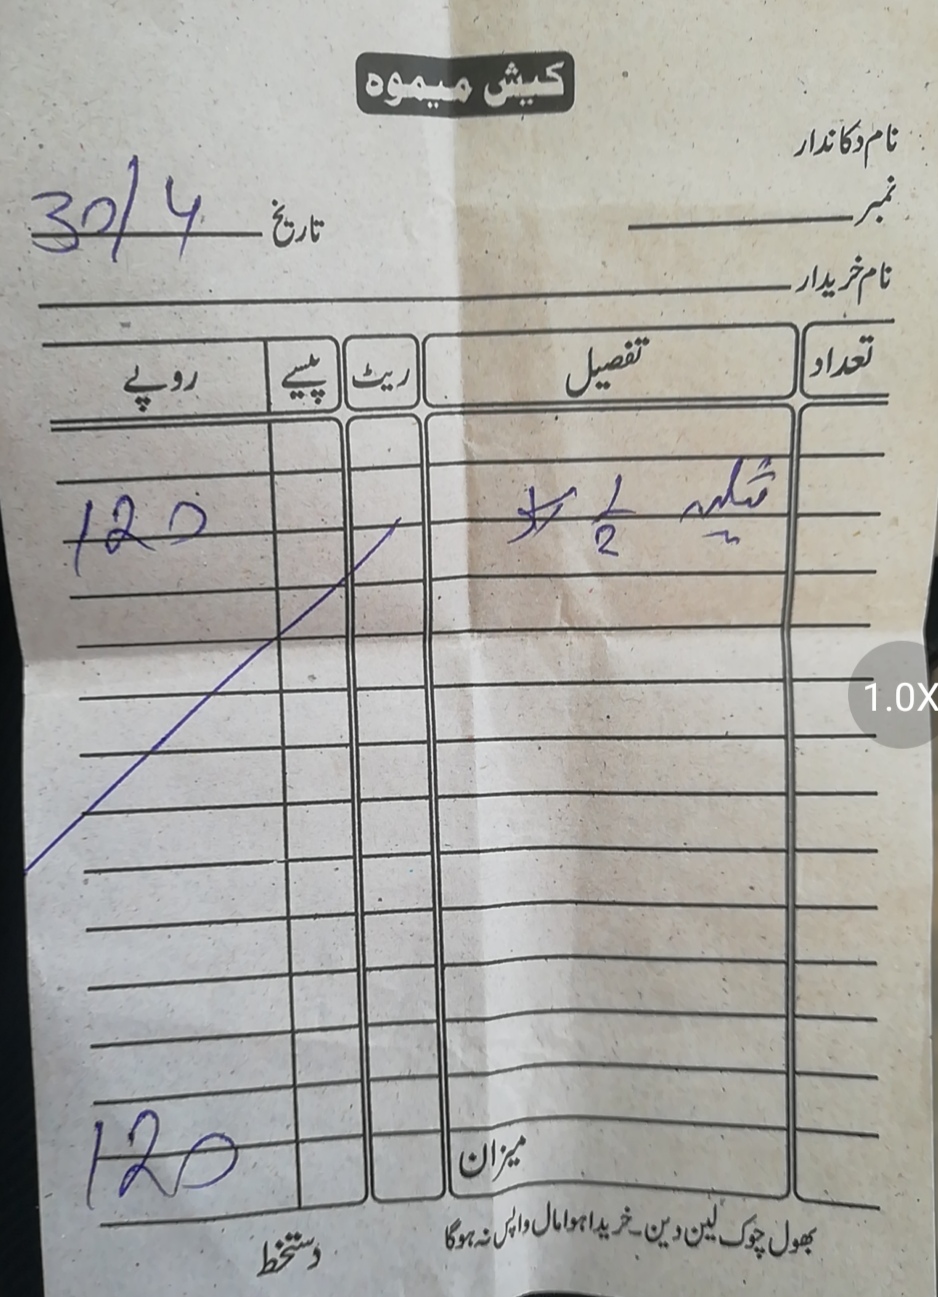 کیش میموہ
نام دکاندار
نمبر
تاریخ 30/4
نام خریدار
تعداد تفصیل ریٹ پیسے روپے
1/2 120
میزان 120
بھول چوک لین دین۔ خریدا ہوا مال واپس نہ ہوگا
دستخط
1.0X